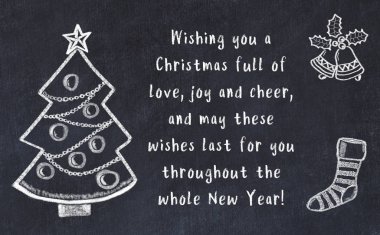 Wishing you a
Christmas full of
love, joy and cheer,
and may these
wishes last for you
throughout the
whole New Year!